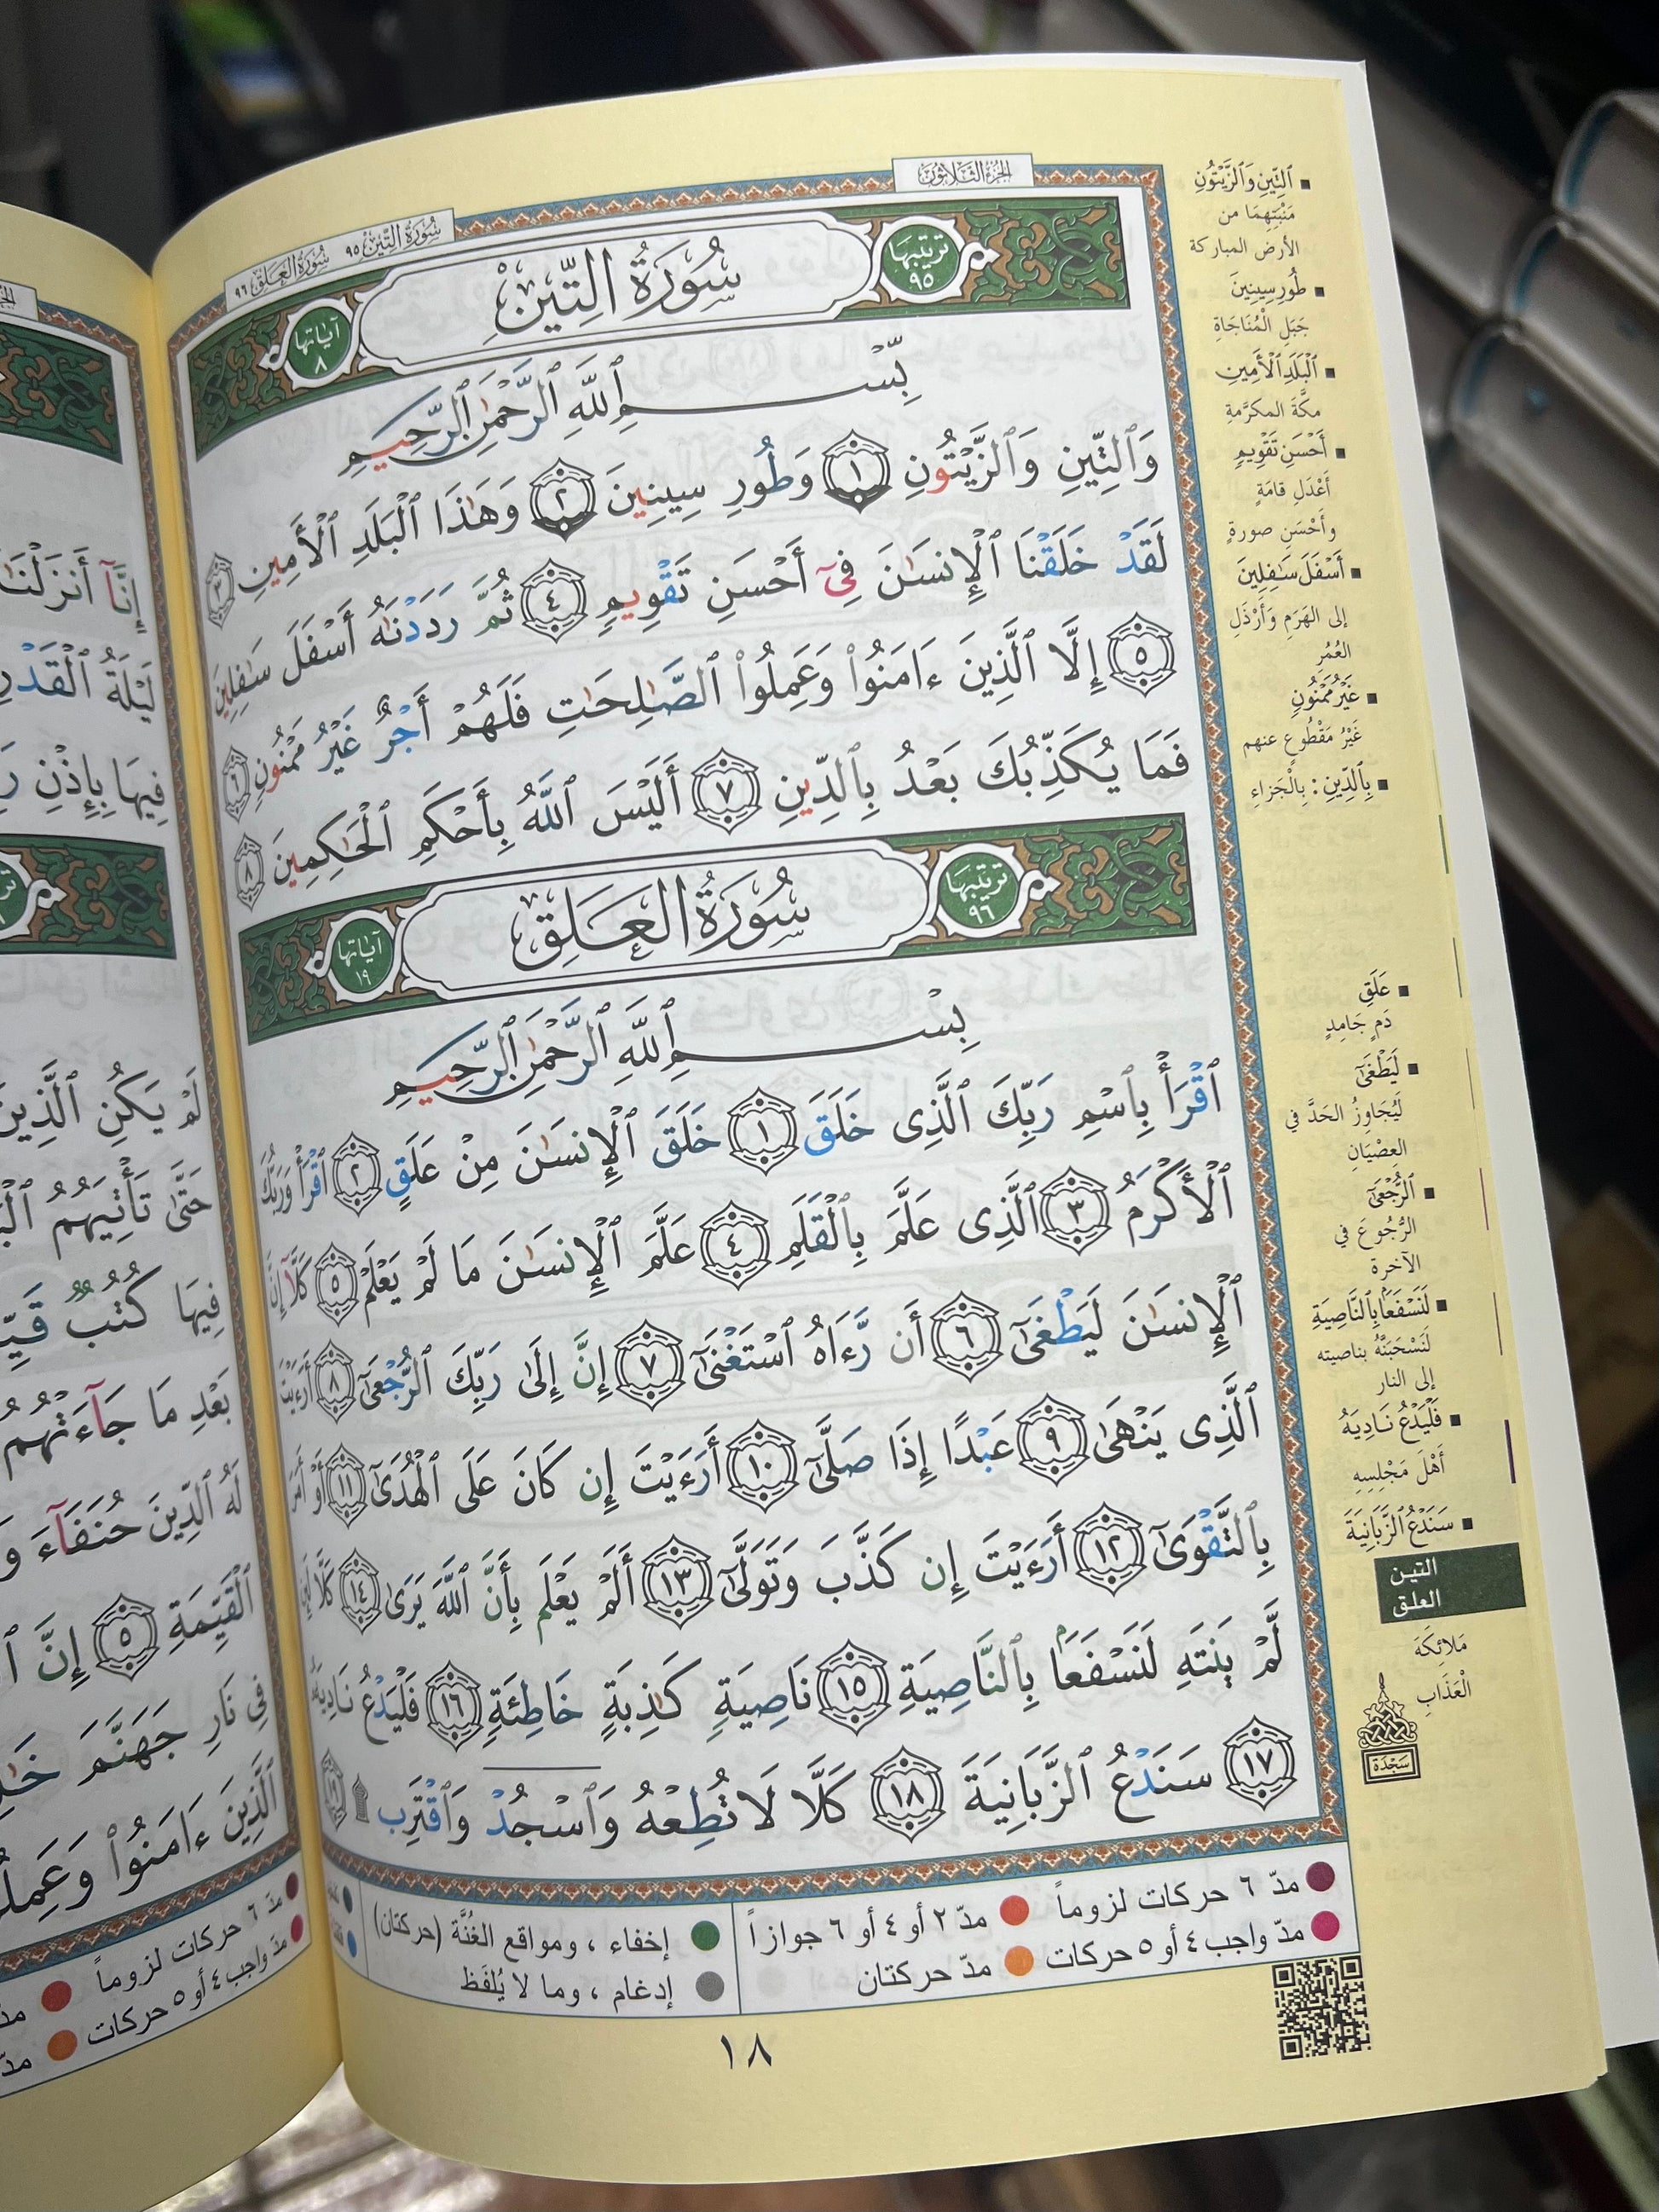 الجزء الثلاثون
سورة التين ٩٥ سورة العلق ٩٦
ترتيبها ٩٥
سُورَةُ التِّينِ
آياتها ٨
بِسْمِ ٱللَّهِ ٱلرَّحْمَٰنِ ٱلرَّحِيمِ
وَٱلتِّينِ وَٱلزَّيْتُونِ ١ وَطُورِ سِينِينَ ٢ وَهَٰذَا ٱلْبَلَدِ ٱلْأَمِينِ ٣
لَقَدْ خَلَقْنَا ٱلْإِنسَٰنَ فِىٓ أَحْسَنِ تَقْوِيمٍ ٤ ثُمَّ رَدَدْنَٰهُ أَسْفَلَ سَٰفِلِينَ
٥ إِلَّا ٱلَّذِينَ ءَامَنُوا۟ وَعَمِلُوا۟ ٱلصَّٰلِحَٰتِ فَلَهُمْ أَجْرٌ غَيْرُ مَمْنُونٍ ٦
فَمَا يُكَذِّبُكَ بَعْدُ بِٱلدِّينِ ٧ أَلَيْسَ ٱللَّهُ بِأَحْكَمِ ٱلْحَٰكِمِينَ ٨
ترتيبها ٩٦
سُورَةُ العَلَقِ
آياتها ١٩
بِسْمِ ٱللَّهِ ٱلرَّحْمَٰنِ ٱلرَّحِيمِ
ٱقْرَأْ بِٱسْمِ رَبِّكَ ٱلَّذِى خَلَقَ ١ خَلَقَ ٱلْإِنسَٰنَ مِنْ عَلَقٍ ٢ ٱقْرَأْ وَرَبُّكَ
ٱلْأَكْرَمُ ٣ ٱلَّذِى عَلَّمَ بِٱلْقَلَمِ ٤ عَلَّمَ ٱلْإِنسَٰنَ مَا لَمْ يَعْلَمْ ٥ كَلَّآ إِنَّ
ٱلْإِنسَٰنَ لَيَطْغَىٰٓ ٦ أَن رَّءَاهُ ٱسْتَغْنَىٰٓ ٧ إِنَّ إِلَىٰ رَبِّكَ ٱلرُّجْعَىٰٓ ٨ أَرَءَيْتَ
ٱلَّذِى يَنْهَىٰ ٩ عَبْدًا إِذَا صَلَّىٰٓ ١٠ أَرَءَيْتَ إِن كَانَ عَلَى ٱلْهُدَىٰٓ ١١ أَوْ أَمَرَ
بِٱلتَّقْوَىٰٓ ١٢ أَرَءَيْتَ إِن كَذَّبَ وَتَوَلَّىٰٓ ١٣ أَلَمْ يَعْلَم بِأَنَّ ٱللَّهَ يَرَىٰ ١٤ كَلَّا لَئِن
لَّمْ يَنتَهِ لَنَسْفَعًۢا بِٱلنَّاصِيَةِ ١٥ نَاصِيَةٍ كَٰذِبَةٍ خَاطِئَةٍ ١٦ فَلْيَدْعُ نَادِيَهُۥ
١٧ سَنَدْعُ ٱلزَّبَانِيَةَ ١٨ كَلَّا لَا تُطِعْهُ وَٱسْجُدْ وَٱقْتَرِب ۩ ١٩
ٱلتِّينِ وَٱلزَّيْتُونِ
مَنْبَتِهِمَا من
الأرض المباركة
طُورِ سِينِينَ
جَبَلِ الْمُنَاجَاةِ
ٱلْبَلَدِ ٱلْأَمِينِ
مكَّةَ المكرَّمةِ
أَحْسَنِ تَقْوِيمٍ
أَعْدَلِ قامَةٍ
وأَحْسَنِ صورةٍ
أَسْفَلَ سَٰفِلِينَ
إلى الهَرَمِ وَأَرْذَلِ
العُمُرِ
غَيْرُ مَمْنُونٍ
غَيْرُ مَقْطُوعٍ عنهم
بِٱلدِّينِ : بِالْجَزاءِ
عَلَقٍ
دَمٍ جَامِدٍ
لَيَطْغَىٰٓ
لَيُجَاوِزُ الحَدَّ في
العِصْيَانِ
ٱلرُّجْعَىٰٓ
الرُّجُوعَ في
الآخرة
لَنَسْفَعًۢا بِٱلنَّاصِيَةِ
لَنَسْحَبَنَّهُ بناصيته
إلى النار
فَلْيَدْعُ نَادِيَهُۥ
أَهْلَ مَجْلِسِهِ
سَنَدْعُ ٱلزَّبَانِيَةَ
التين
العلق
مَلائِكَةَ
الْعَذَابِ
سَجْدَة
مدّ ٦ حركات لزوماً
مدّ ٢ أو ٤ أو ٦ جوازاً
مدّ واجب ٤ أو ٥ حركات
مدّ حركتان
إخفاء ، ومواقع الغُنَّة (حركتان)
إدغام ، وما لا يُلفَظ
١٨
إِنَّآ أَنزَلْنَٰ
لَيْلَةُ ٱلْقَدْرِ
فِيهَا بِإِذْنِ
لَمْ يَكُنِ ٱلَّذِينَ
حَتَّىٰ تَأْتِيَهُمُ
فِيهَا كُتُبٌ
بَعْدِ مَا جَآءَتْهُمُ
لَهُ ٱلدِّينَ حُنَفَآءَ
ٱلْقَيِّمَةِ ٥ إِنَّ
فِى نَارِ جَهَنَّمَ
ٱلَّذِينَ ءَامَنُوا۟
مدّ ٦ حركات لزوماً
مدّ واجب ٤ أو ٥ حركات